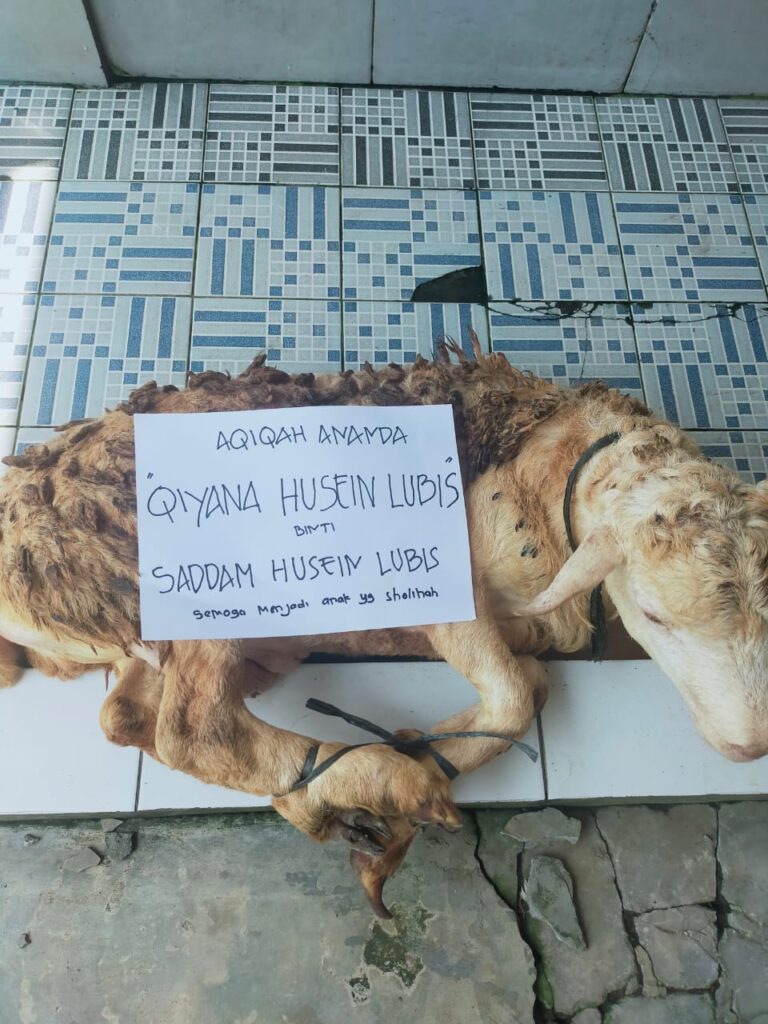 AQIQAH ANANDA
"QIYANA HUSEIN LUBIS"
BINTI
SADDAM HUSEIN LUBIS
Semoga Menjadi anak yg sholihah